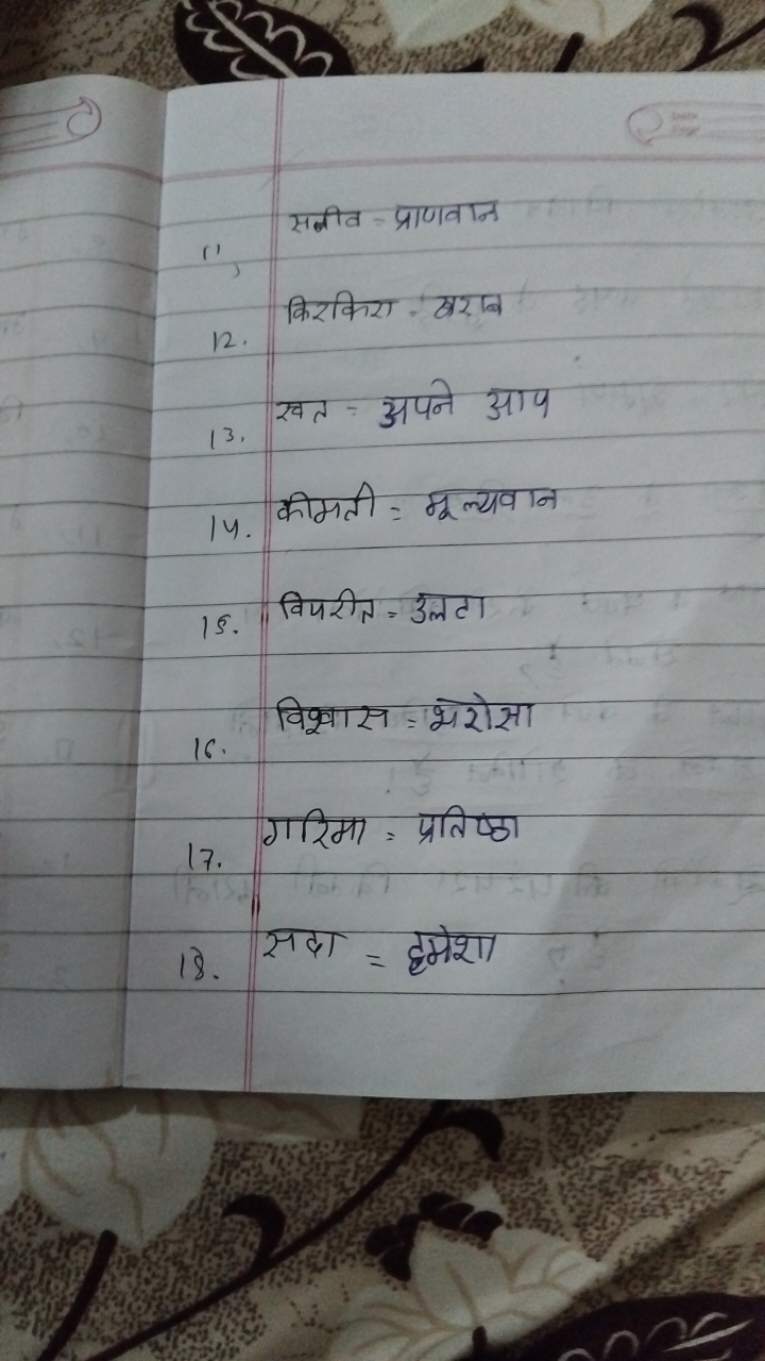 11, सजीव = प्राणवान
12. किरकिरा = खराब
13. स्वत = अपने आप
14. कीमती = मूल्यवान
15. विपरीत = उलटा
16. विश्वास = भरोसा
17. गरिमा = प्रतिष्ठा
18. सदा = हमेशा